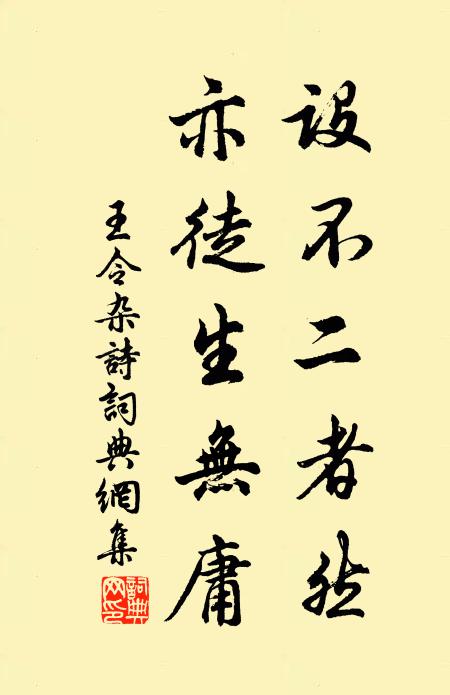 設不二者然
亦徒生無庸
王令杂詩詞典網集
詞典网印